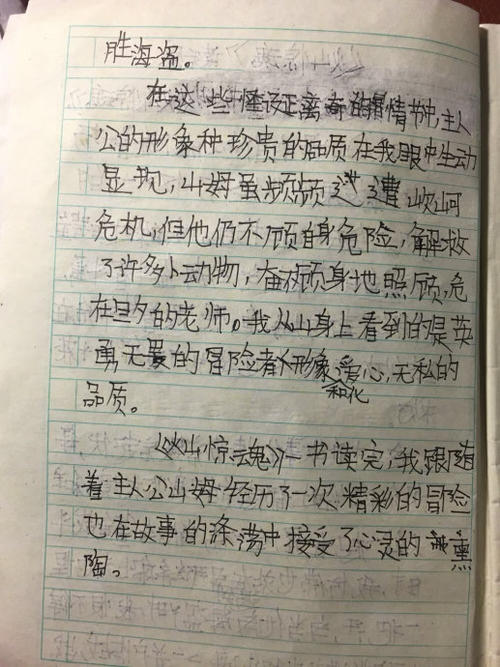 胜海盗。
在这些怪诞距离奇的情节中,主人
公的形象种珍贵的品质在我眼中生动
显现,山姆虽频频遭
危机,但他仍不顾自身危险,解救
了许多小动物,奋不顾身地照顾,危
在旦夕的老师。我从山身上看到的是英
勇无畏的冒险者形象和他爱心,无私的
品质。
《火山惊魂》一书读完,我跟随
着主人公山姆经历了一次精彩的冒险
也在故事的涤荡中接受了心灵的熏
陶。